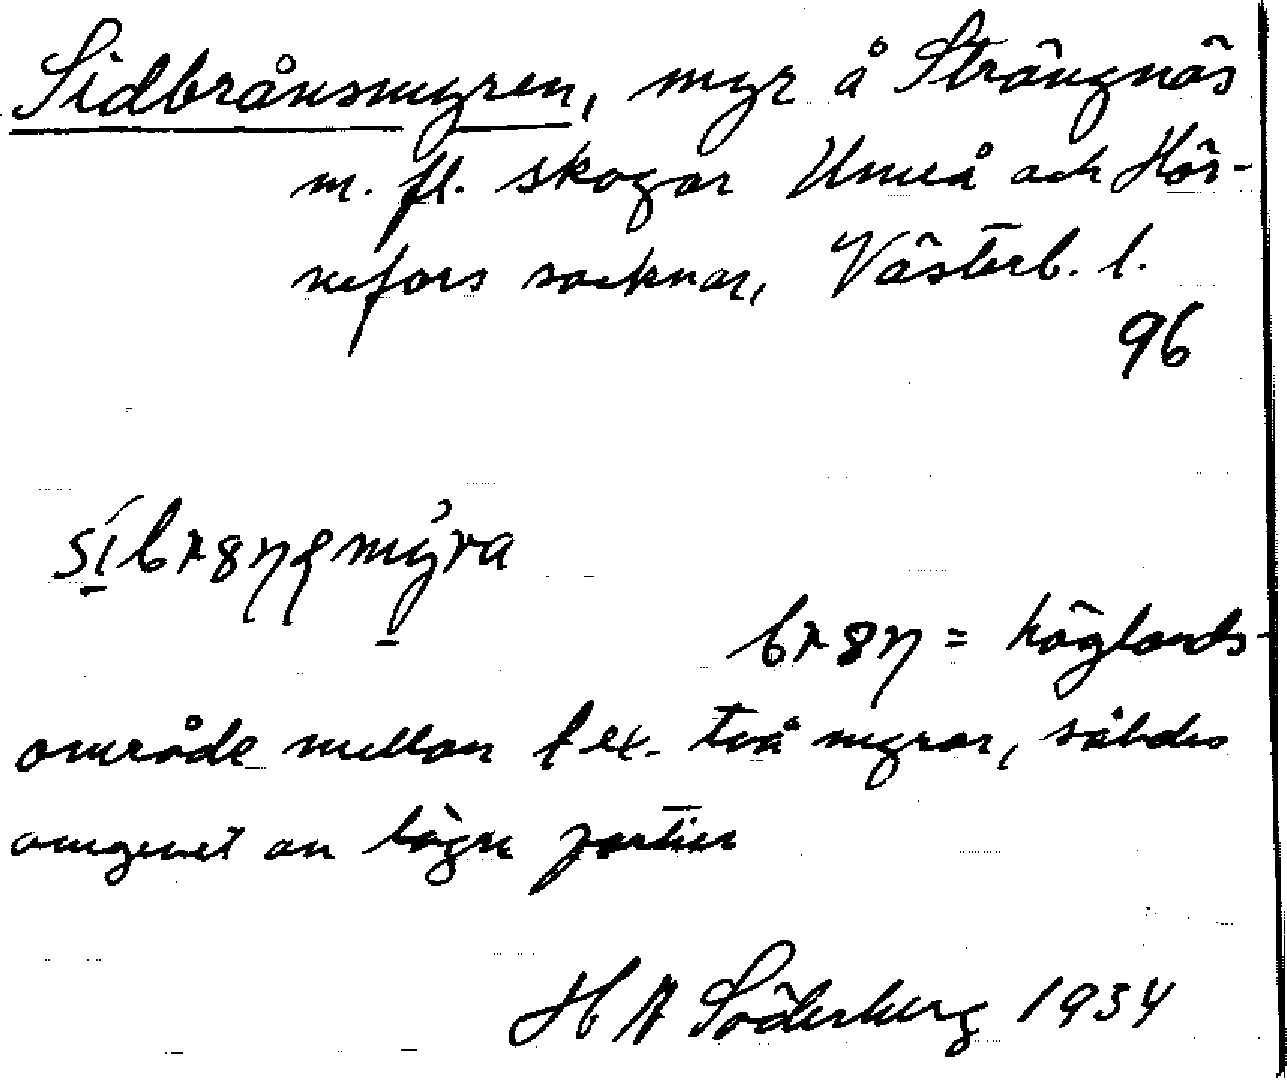 Sidbrånsmyren, myr å Strängnäs
m. fl. skogar Umeå och Hör-
nefors socknar, Västerb. l.
96
br8η = höglands-
område mellan t. ex. två myrar, således
omgivet av lägre partier
H A Söderberg 1934